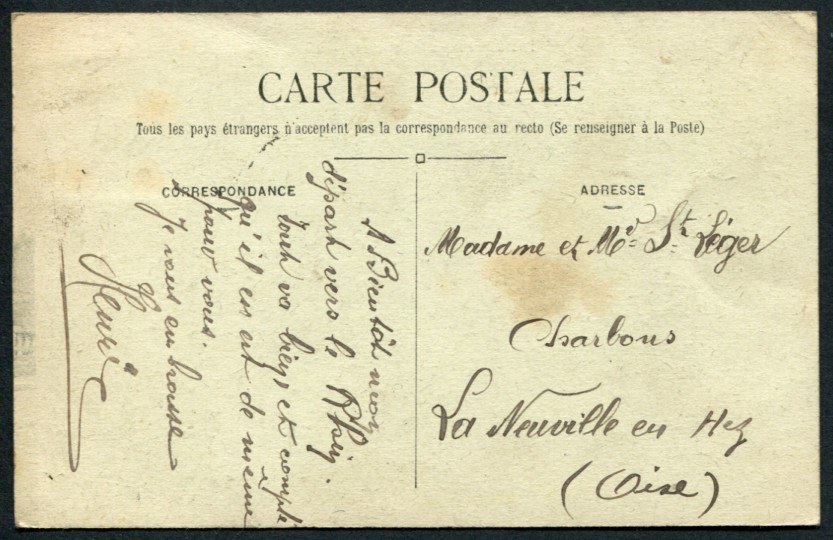 CARTE POSTALE
Tous les pays étrangers n'acceptent pas la correspondance au recto (Se renseigner à la Poste)
CORRESPONDANCE
A Bientôt mon
départ vers le Rhin.
tout va bien et compte
qu'il en est de même
pour vous.
Je vous embrasse
Henri
ADRESSE
Madame et Mr St Léger
Charbons
La Neuville en Hez
(Oise)